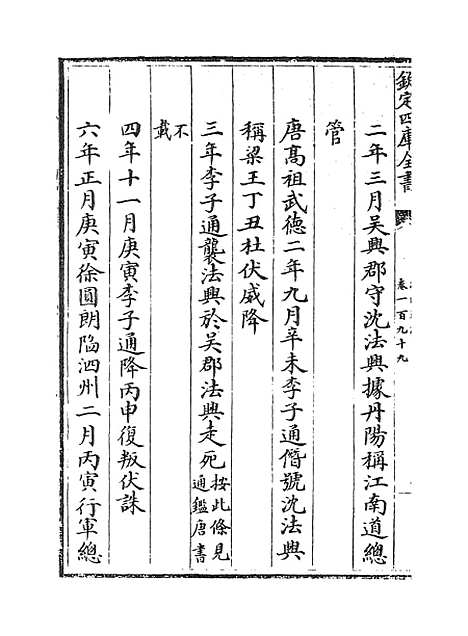 欽定四庫全書
卷一百九十九
二年三月吳興郡守沈法興據丹陽稱江南道總
管
唐髙祖武德二年九月辛未李子通僭號沈法興
稱梁王丁丑杜伏威降
三年李子通襲法興於吳郡法興走死按此條見
通鑑唐書
不
載
四年十一月庚寅李子通降丙申復叛伏誅
六年正月庚寅徐圓朗陷泗州二月丙寅行軍總